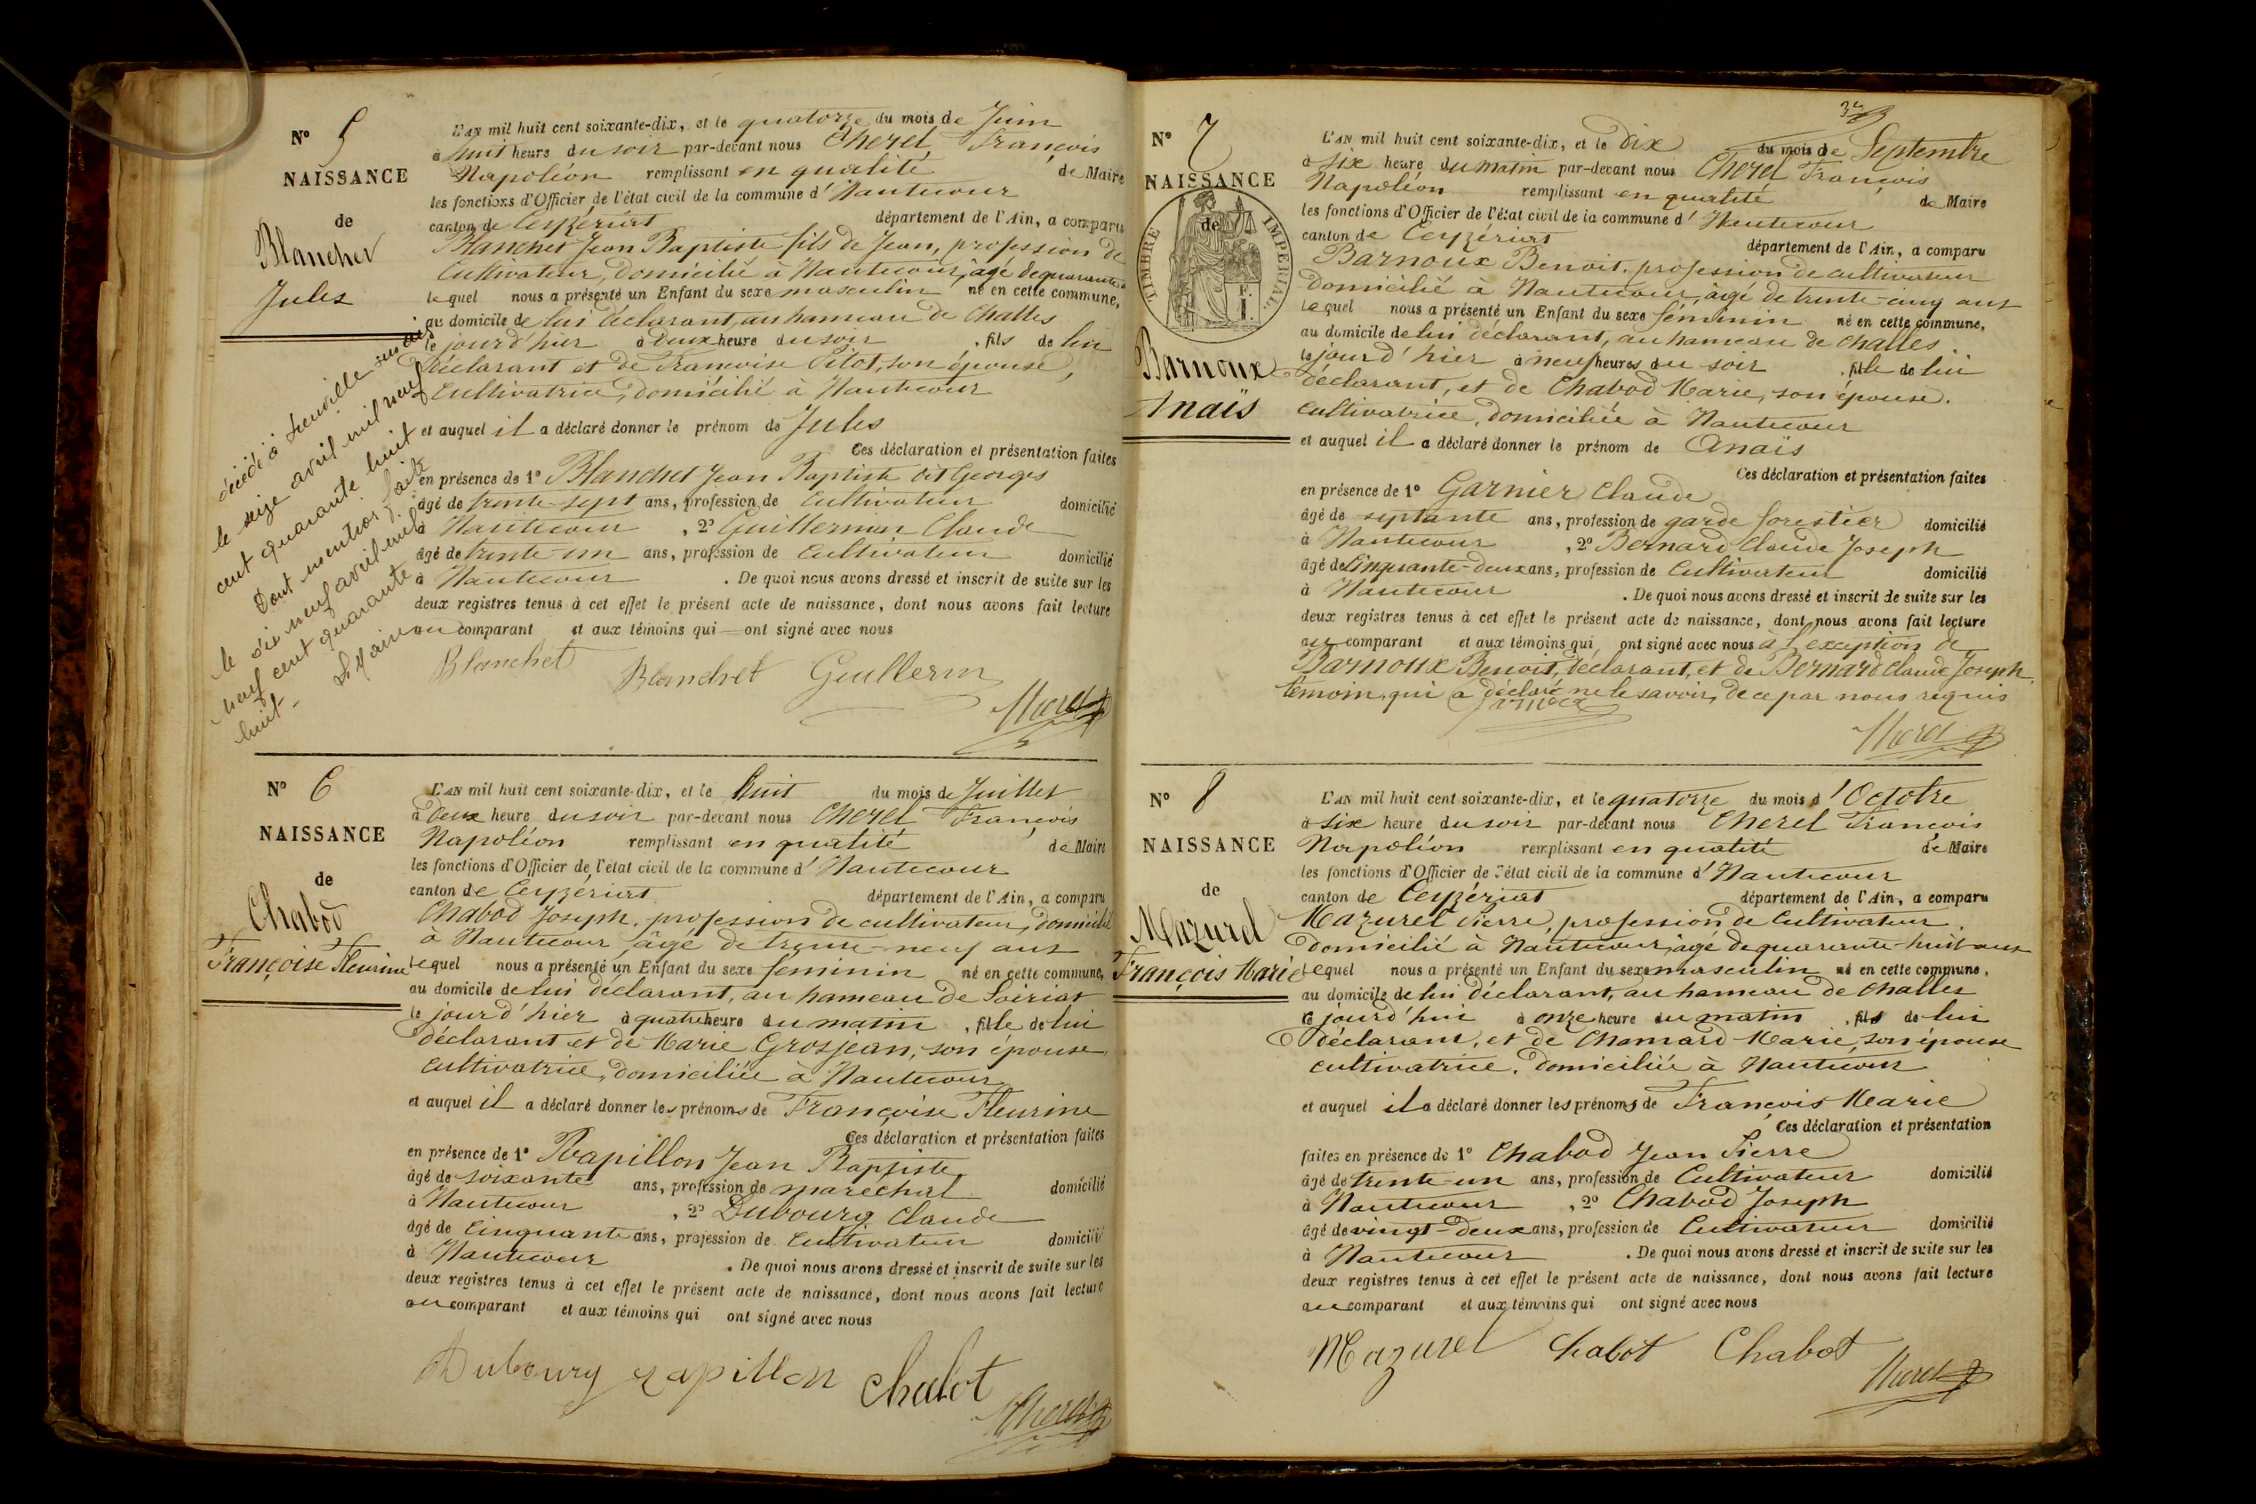 N° 5
NAISSANCE
de
Blanchet
Jules
L'AN mil huit cent soixante-dix, et le quatorze du mois de Juin
à huit heure du soir par-devant nous Cherel François
Napoléon remplissant en qualité de Maire
les fonctions d'Officier de l'état civil de la commune d'Hautecour
canton de Ceyzériat département de l'Ain, a comparu
Blanchet Jean Baptiste fils de Jean, profession de
Cultivateur, domicilié à Hautecour, âgé de quarante
lequel nous a présenté un Enfant du sexe masculin né en cette commune,
au domicile de lui déclarant, au hameau de Challes
le jourd'hier à deux heure du soir, fils de lui
déclarant et de Francoise Pilot, son épouse,
cultivatrice, domicilié à Hautecour
et auquel il a déclaré donner le prénom de Jules
Ces déclaration et présentation faites
en présence de 1° Blanchet Jean Baptiste dit Georges
âgé de trente-sept ans, profession de Cultivateur domicilié
à Hautecour, 2° Guillermin Claude
âgé de trente-un ans, profession de Cultivateur domicilié
à Hautecour. De quoi nous avons dressé et inscrit de suite sur les
deux registres tenus à cet effet le présent acte de naissance, dont nous avons fait lecture
au comparant et aux témoins qui ont signé avec nous
Blanchet Blanchet Guillermin
Cherel
décédé à
le seize avril mil neuf
cent quarante huit
Dont mention faite
le dix neuf avril mil
neuf cent quarante
huit.
N° 6
NAISSANCE
de
Chabod
Françoise Fleurine
L'AN mil huit cent soixante-dix, et le huit du mois de Juillet
à deux heure du soir par-devant nous Cherel François
Napoléon remplissant en qualité de Maire
les fonctions d'Officier de l'état civil de la commune d'Hautecour
canton de Ceyzériat département de l'Ain, a comparu
Chabod Joseph, profession de cultivateur, domicilié
à Hautecour, âgé de trente-neuf ans
lequel nous a présenté un Enfant du sexe féminin né en cette commune,
au domicile de lui déclarant, au hameau de Soiriat
le jourd'hier à quatre heure du matin, fille de lui
déclarant et de Marie Grosjean, son épouse,
cultivatrice, domiciliée à Hautecour
et auquel il a déclaré donner les prénoms de Françoise Fleurine
Ces déclaration et présentation faites
en présence de 1° Rapillon Jean Baptiste
âgé de soixante ans, profession de maréchal domicilié
à Hautecour, 2° Dubourg Claude
âgé de Cinquante ans, profession de Cultivateur domicilié
à Hautecour. De quoi nous avons dressé et inscrit de suite sur les
deux registres tenus à cet effet le présent acte de naissance, dont nous avons fait lecture
au comparant et aux témoins qui ont signé avec nous
Dubourg rapillon Chabot
Cherel
N° 7
NAISSANCE
de
TIMBRE IMPERIAL
Barnoux
Anaïs
L'AN mil huit cent soixante-dix, et le Dix du mois de Septembre
à six heure du matin par-devant nous Cherel François
Napoléon remplissant en qualité de Maire
les fonctions d'Officier de l'état civil de la commune d'Hautecour
canton de Ceyzériat département de l'Ain, a comparu
Barnoux Benoit, profession de cultivateur
domicilié à Hautecour, âgé de trente-cinq ans
lequel nous a présenté un Enfant du sexe féminin né en cette commune,
au domicile de lui déclarant, au hameau de Challes
le jourd'hier à neuf heures du soir, fille de lui
déclarant, et de Chabod Marie, son épouse.
cultivatrice, domiciliée à Hautecour
et auquel il a déclaré donner le prénom de Anaïs
Ces déclaration et présentation faites
en présence de 1° Garnier Claude
âgé de septante ans, profession de garde forestier domicilié
à Hautecour, 2° Bernard Claude Joseph
âgé de Cinquante-deux ans, profession de Cultivateur domicilié
à Hautecour. De quoi nous avons dressé et inscrit de suite sur les
deux registres tenus à cet effet le présent acte de naissance, dont nous avons fait lecture
au comparant et aux témoins qui ont signé avec nous à l'exception de
Barnoux Benoit, déclarant, et de Bernard Claude Joseph,
témoin, qui a déclaré ne le savoir, de ce par nous requis
Cherel
N° 8
NAISSANCE
de
Mazurel
François Marie
L'AN mil huit cent soixante-dix, et le quatorze du mois d'Octobre
à six heure du soir par-devant nous Cherel François
Napoléon remplissant en qualité de Maire
les fonctions d'Officier de l'état civil de la commune d'Hautecour
canton de Ceyzériat département de l'Ain, a comparu
Mazurel Pierre, profession de Cultivateur,
domicilié à Hautecour, âgé de quarante-huit ans
lequel nous a présenté un Enfant du sexe masculin né en cette commune,
au domicile de lui déclarant, au hameau de Challes
ce jourd'hui à onze heure du matin, fils de lui
déclarant, et de Chanard Marie, son épouse
cultivatrice, domiciliée à Hautecour
et auquel il a déclaré donner les prénoms de François Marie
Ces déclaration et présentation
faites en présence de 1° Chabod Jean Pierre
âgé de trente-un ans, profession de Cultivateur domicilié
à Hautecour, 2° Chabod Joseph
âgé de vingt-deux ans, profession de Cultivateur domicilié
à Hautecour. De quoi nous avons dressé et inscrit de suite sur les
deux registres tenus à cet effet le présent acte de naissance, dont nous avons fait lecture
au comparant et aux témoins qui ont signé avec nous
Mazurel Chabot Chabot
Cherel